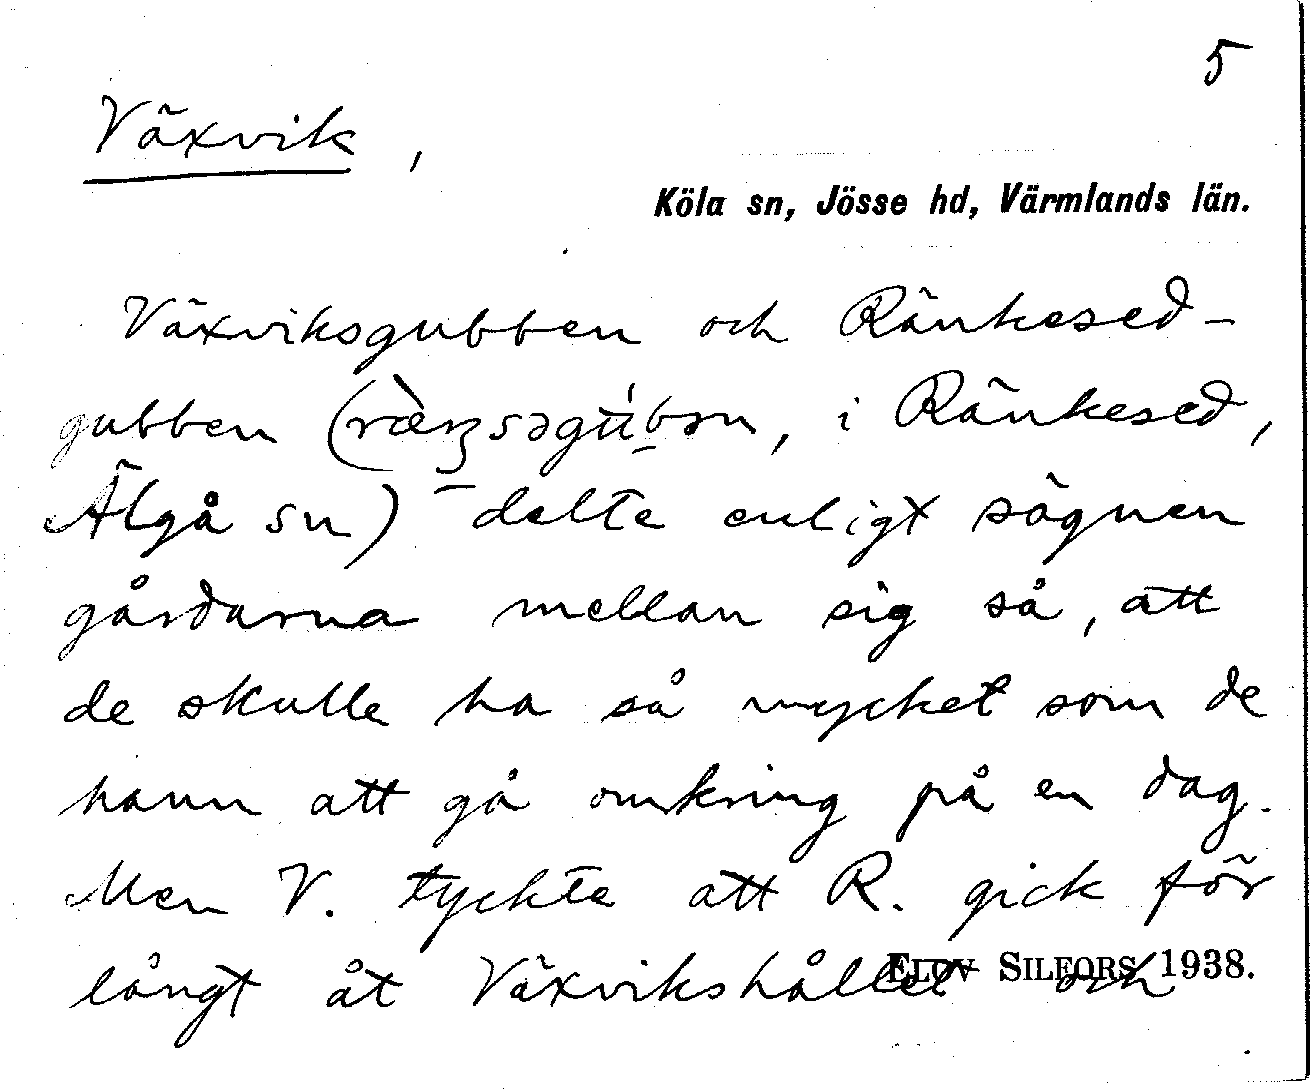 5
Växvik,
Köla sn, Jösse hd, Värmlands län.
Växviksgubben och Ränkesed-
gubben (i Ränkesed,
Älgå sn) delte enligt sägnen
gårdarna mellan sig så, att
de skulle ha så mycket som de
hann att gå omkring på en dag.
Men V. tyckte att R. gick för
långt åt Växvikshållet och
ELOV SILFORS 1938.